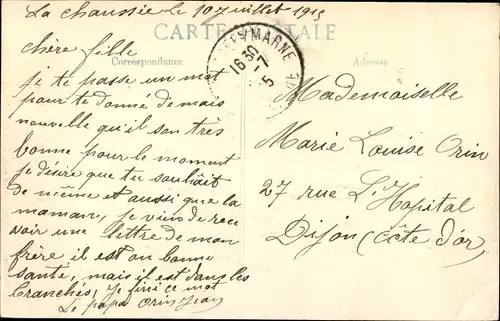 La chaussée le 10 Juillet 1915
CARTE POSTALE
Correspondance
Adresse
MARNE
16 30
5 -7
chère fille
je te passe un mot
pour te donné de mais
nouvelle qu'il son très
bonne pour le moment
je désire que tu soulait
de même et aussi que la
maman, je vien de rece
voir une lettre de mon
frère il est en bonne
santé, mais il est dans les
tranchés, je fini ce mot
Le papa Orin Jean
Mademoiselle
Marie Louise Orin
27 rue L'Hopital
Dijon (Côte d'or)